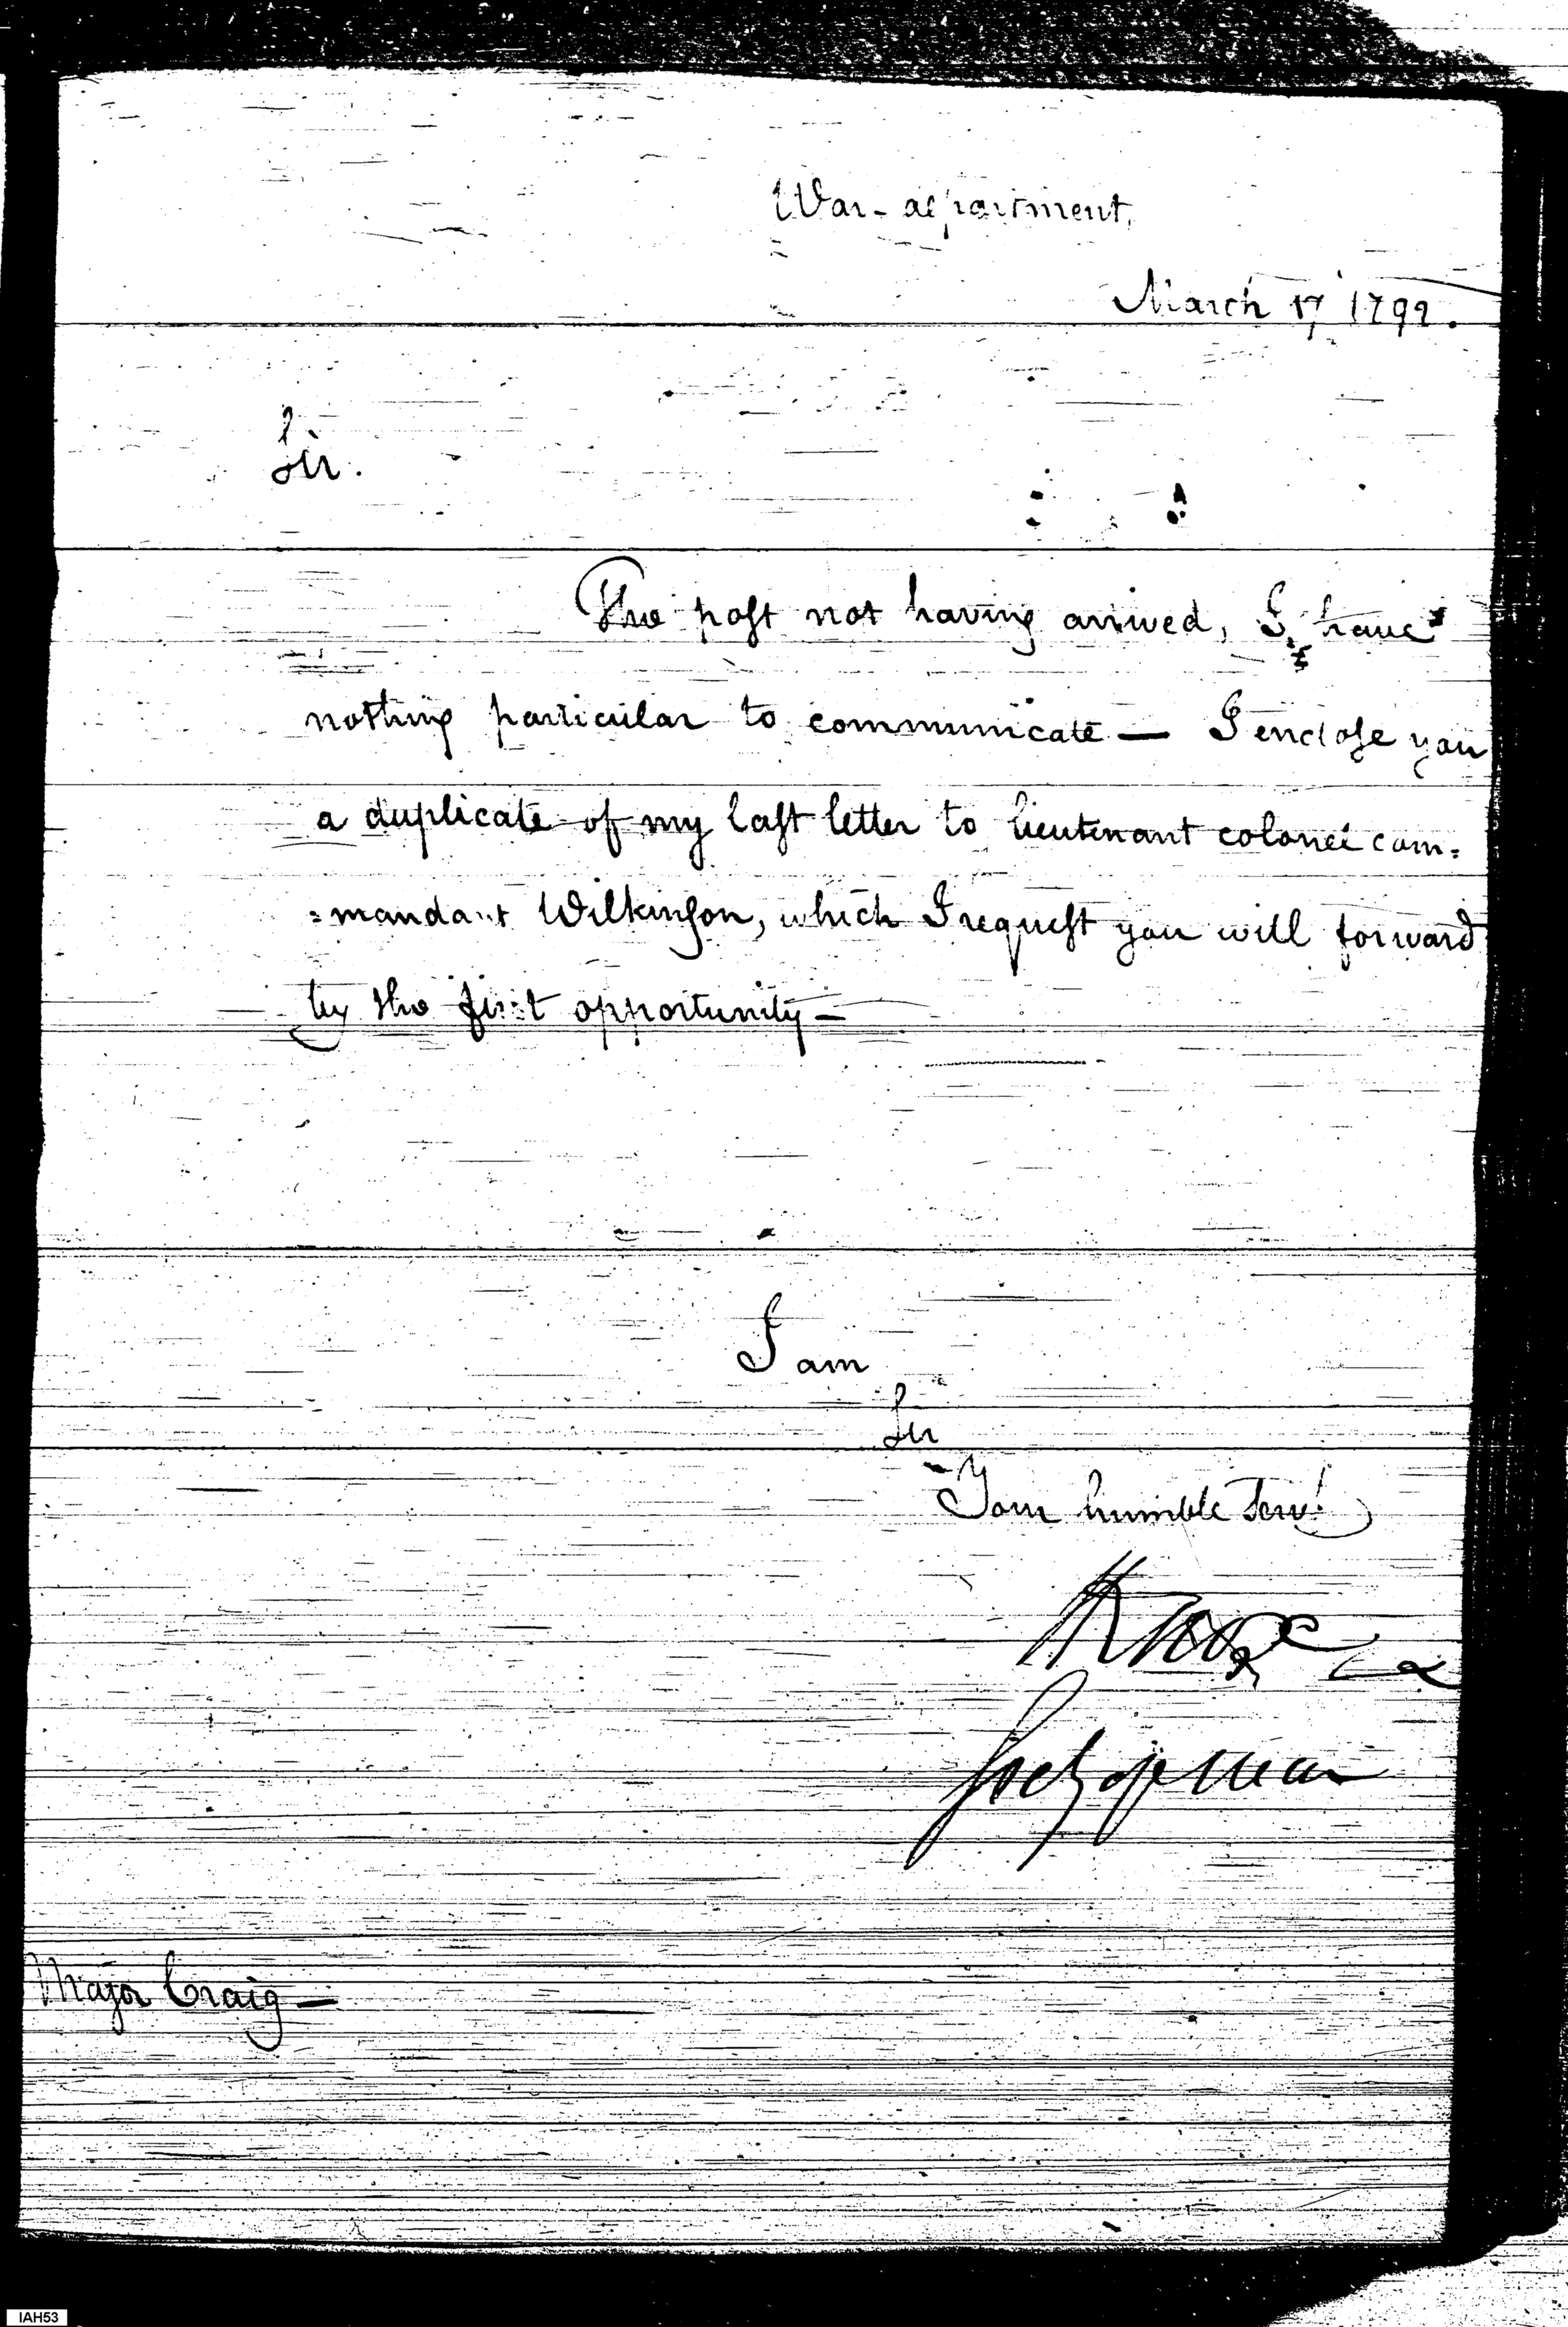 War-department,
March 17 1792.
Sir.
The post not having arrived, I have
nothing particular to communicate — I enclose you
a duplicate of my last letter to lieutenant colonel com=
=mandant Wilkinson, which I request you will forward
by the first opportunity —
I am
Sir
Your humble Servt.
HKnox
Secy of war
Major Craig —
IAH53